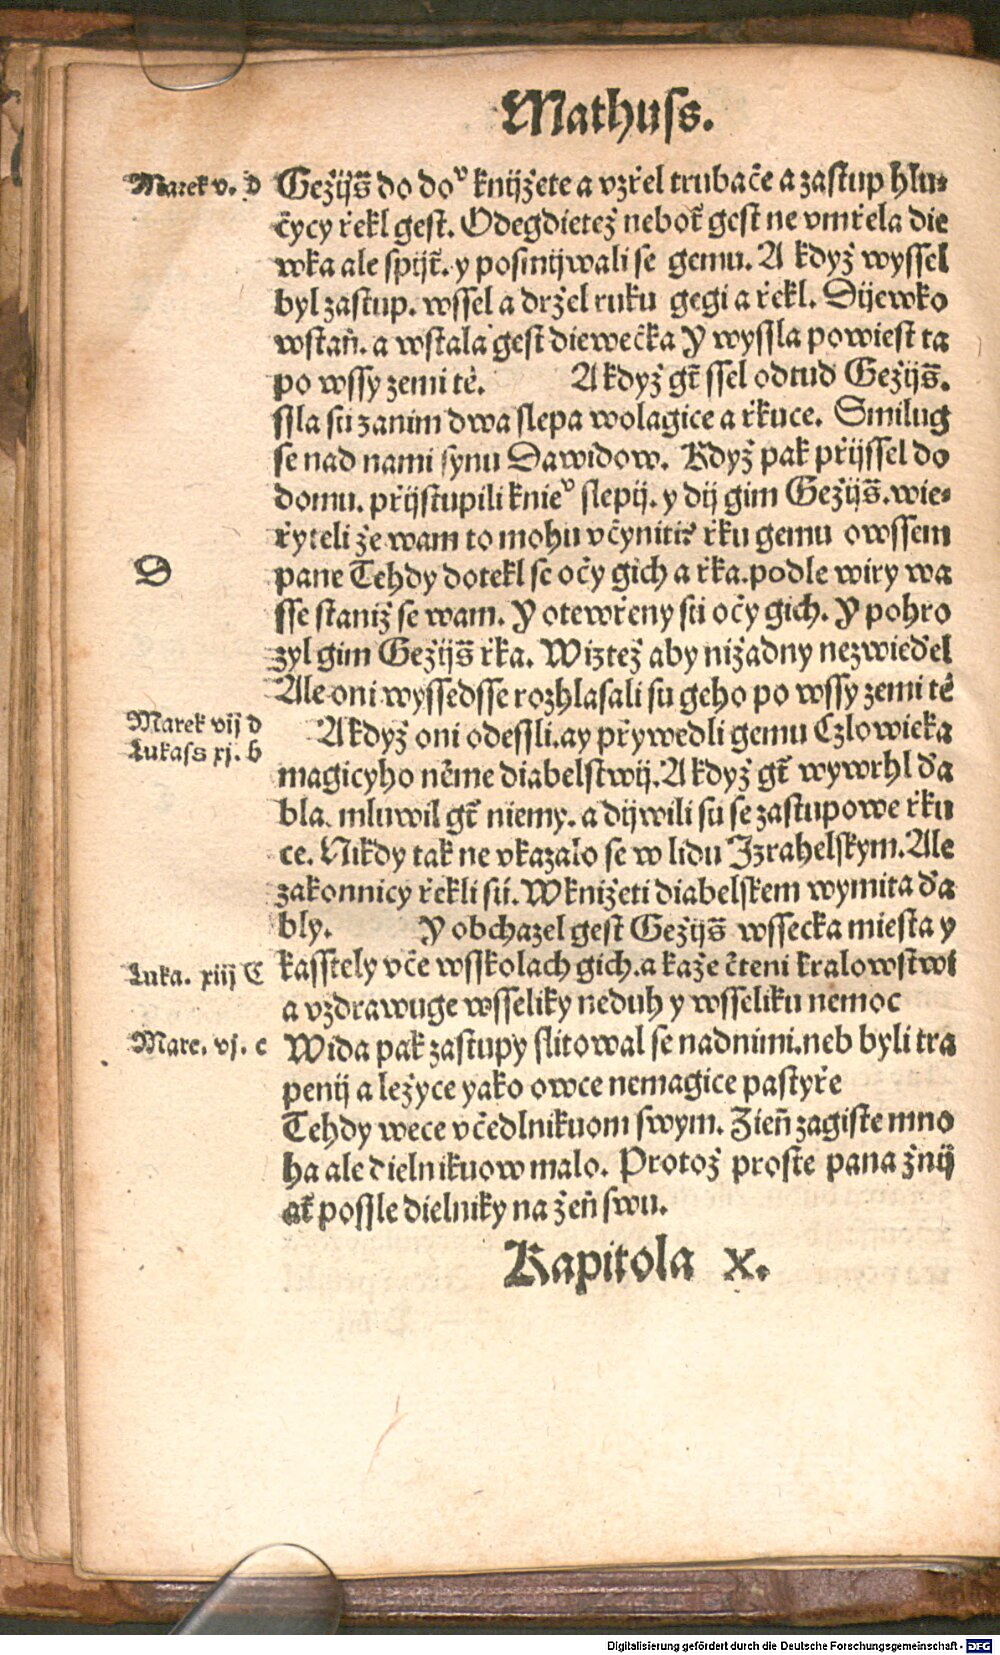 Mathuss.
Marek v. D
Gežijs̄ do doᵛ knijžete a vzřel trubače a zastup hlu⸗
čycy řekl gest. Odegdietež nebot̄ gest ne vmřela die
wka ale spijt̄. y posmijwali se gemu. A když wyssel
byl zastup. wssel a držel ruku gegi a řekl. Dijewko
wstan̄. a wstala gest diewečka Y wyssla powiest ta
po wssy zemi té. A když gt̄ ssel odtud Gežijs̄.
ssla su zanim dwa slepa wolagice a řkuce. Smilug
se nad nami synu Dawidow. Když pak přijssel do
domu. přijstupili knieᵛ slepij. y dij gim Gežijs̄. wie⸗
řyteli že wam to mohu včyniti? řku gemu owssem
D
pane Tehdy dotekl se očy gich a řka. podle wiry wa
sse staniž se wam. Y otewřeny su očy gich. Y pohro
zyl gim Gežijs̄ řka. Wiztež aby nižadny nezwieďel
Ale oni wyssedsse rozhlasali su geho po wssy zemi té
Marek vij d
Lukass xj. b
A když oni odessli. ay přywedli gemu Czlowieka
magicyho něme diabelstwij. A když gt̄ wywrhl ďa
bla. mluwil gt̄ niemy. a dijwili su se zastupowe řku
ce. Nikdy tak ne vkazalo se w lidu Izrahelskym. Ale
zakonnicy řekli sú. W knižeti diabelskem wymita ďa
bly. Y obchazel gest Gežijs̄ wssecka miesta y
Luka. xiij C
kasstely vče wsskolach gich. a kaže čteni kralowstwi
a vzdrawuge wsseliky neduh y wsseliku nemoc
Mare. vj. c
Wida pak zastupy slitowal se nadnimi. neb byli tra
penij a ležyce yako owce nemagice pastyře
Tehdy wece včedlnikuom swym. Žien̄ zagiste mno
ha ale dielnikuow malo. Protož proste pana žnij
at̄ possle dielniky na žen̄ swu.
Kapitola X.
Digitalisierung gefördert durch die Deutsche Forschungsgemeinschaft - DFG